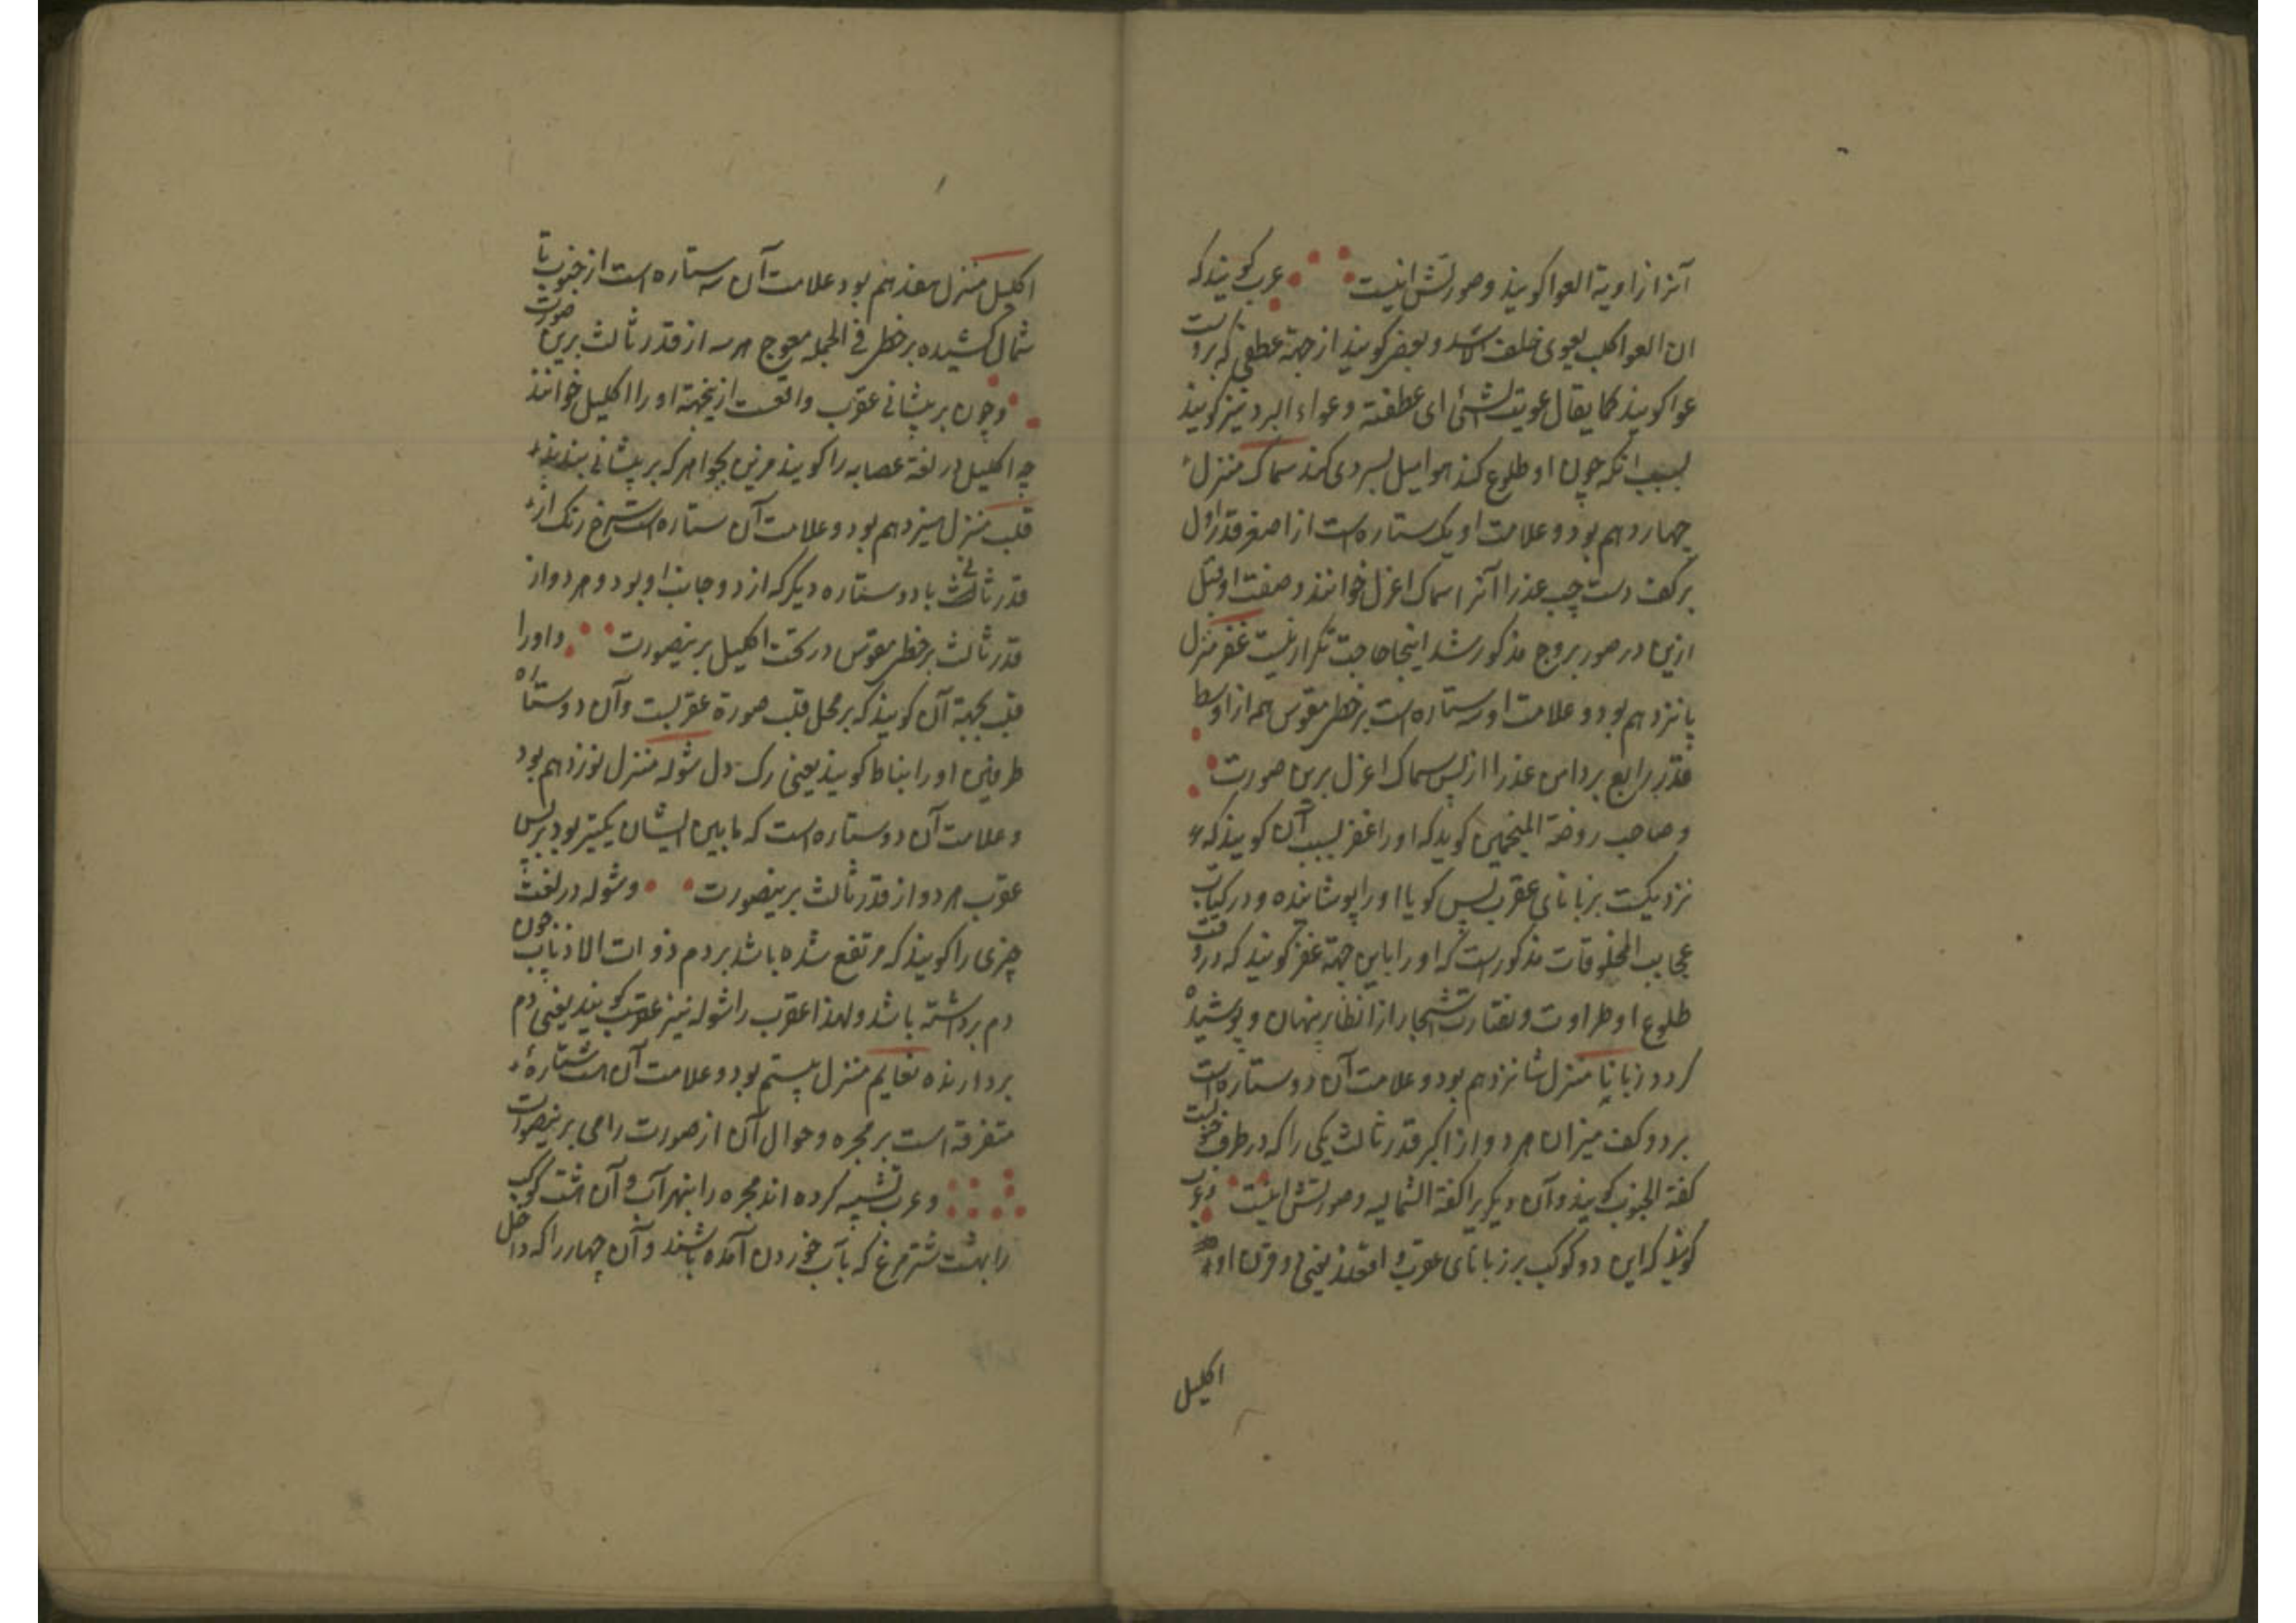 آنرا زاویة العوا کویند و صورتش اینست عرب کویند که
ان العوا کلب یعوی خلف الاسد و بعضی کویند از جهة عطفی که بروست
عوا کویند کما یقال عویت الشئ ای عطفته و عواء البرد نیز کویند
بسبب انکه چون او طلوع کند هوا میل بسردی کند سماک منزل
چهاردهم بود و علامت او یک ستاره است از اصغر قدر اول
بر کف دست چپ عذرا آنرا سماک اعزل خوانند و صفت او قبل
ازین در صور بروج مذکور شد اینجا حاجت تکرار نیست غفر منزل
پانزدهم بود و علامت او سه ستاره است بر خطی مقوس همه از اوسط
قدر رابع بر دامن عذرا از پس سماک اعزل برین صورت
و صاحب روضة المنجمین کوید که او را غفر بسبب آن کویند که
نزدیکست بزبانای عقرب پس کویا او را پوشانیده و در کتاب
عجایب المخلوقات مذکور است که او را باین جهة غفر کویند که در وقت
طلوع او طراوت و نضارت اشجار از انظار پنهان و پوشیده
کردد زبانا منزل شانزدهم بود و علامت آن دو ستاره است
بر دو کف میزان هر دو از اکبر قدر ثالث یکی را که در طرف جنوبست
کفة الجنوب کویند و آن دیکریرا کفة الشمالیه و صورتش اینست و عرب
کویند که این دو کوکب بر زبانای عقرب واقعند یعنی دو قرن او
اکلیل
اکلیل منزل هفدهم بود و علامت آن سه ستاره است از جنوب تا
شمال کشیده بر خطی فی الجمله معوج هر سه از قدر ثالث برین صورت
و چون بر پیشانی عقرب واقعست ازینجهة او را اکلیل خوانند
چه اکلیل در لغة عصابه را کویند مزین بجواهر که بر پیشانی بندند
قلب منزل هیزدهم بود و علامت آن ستاره است سرخ رنک از
قدر ثانی با دو ستاره دیکر که از دو جانب او بود و هر دو از
قدر ثالث بر خطی مقوس در تحت اکلیل برینصورت و او را
قلب بجهة آن کویند که بر محل قلب صورة عقربست و آن دو ستاره
طرفین او را نیاط کویند یعنی رک دل شوله منزل نوزدهم بود
و علامت آن دو ستاره است که ما بین ایشان یکشبر بود بر نیش
عقرب هر دو از قدر ثالث برینصورت و شوله در لغت
چیزی را کویند که مرتفع شده باشد بر دم ذوات الاذناب چون
دم برداشته باشد و لهذا عقرب را شوله نیز عقرب کویند یعنی دم
بردارنده نعایم منزل بیستم بود و علامت آن هشت ستارهٔ
متفرقه است بر مجره و حوالی آن از صورت رامی برینصورت
و عرب تشبیه کرده اند مجره را بنهر آب و آن هشت کوکب
را بهشت شترمرغ که بآب خوردن آمده باشند و آن چهار را که داخل